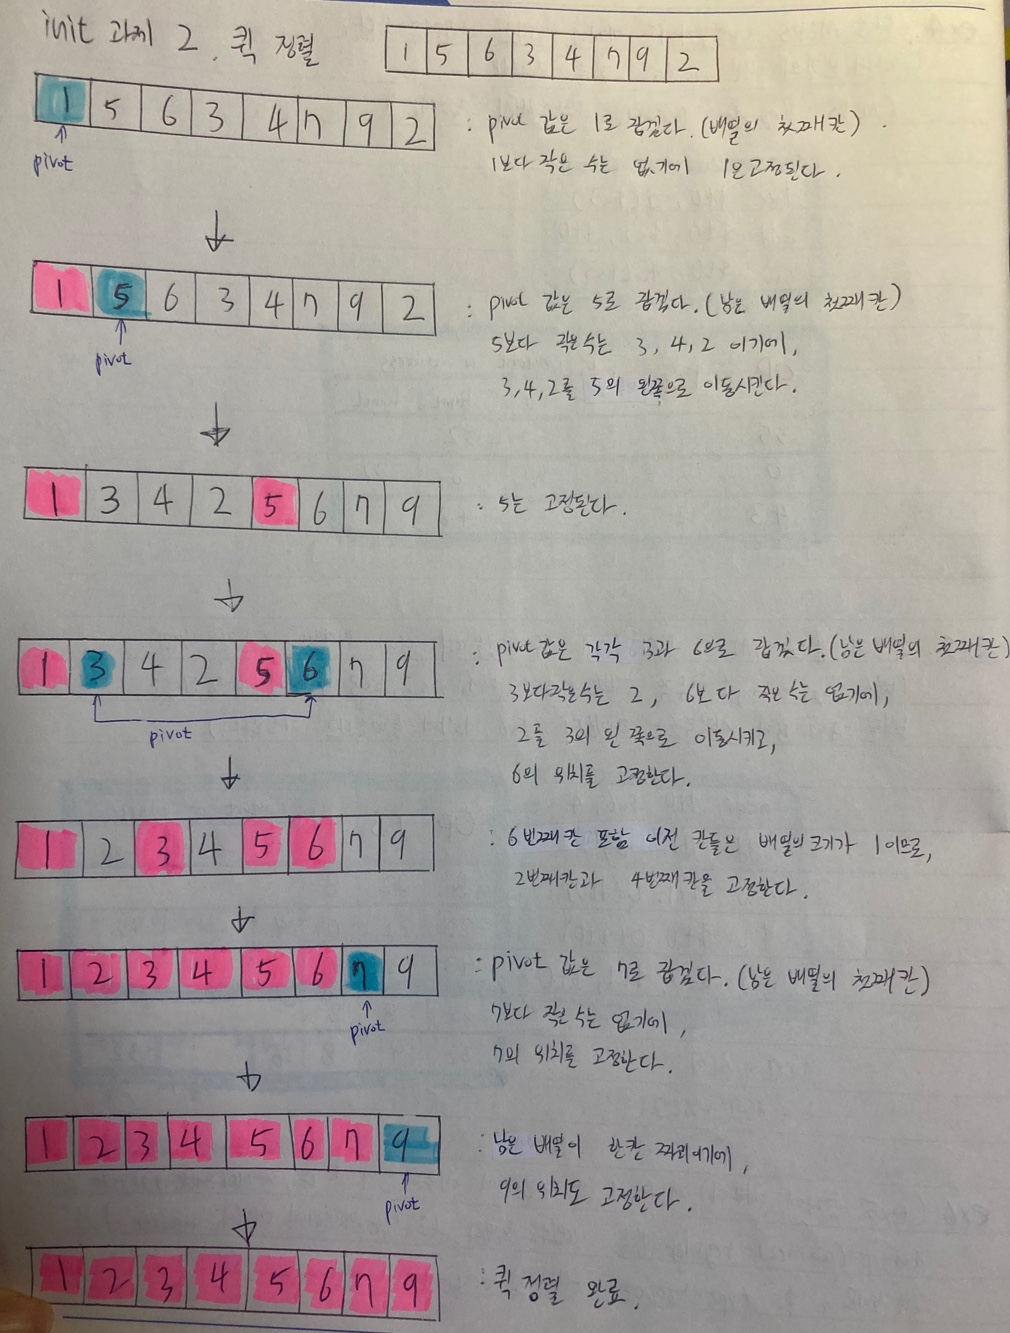 init 과제 2. 퀵 정렬 1 5 6 3 4 7 9 2
1 5 6 3 4 7 9 2
pivot
: pivot 값은 1로 잡겠다. (배열의 첫째칸).
1보다 작은 수는 없기에 1은 고정된다.
1 5 6 3 4 7 9 2
pivot
: pivot 값은 5로 잡겠다. (남은 배열의 첫째칸)
5보다 작은수는 3, 4, 2 이기에,
3,4,2를 5의 왼쪽으로 이동시킨다.
1 3 4 2 5 6 7 9 : 5는 고정된다.
1 3 4 2 5 6 7 9
pivot
: pivot 값은 각각 3과 6으로 잡겠다. (남은 배열의 첫째칸)
3보다작은수는 2, 6보다 작은 수는 없기에,
2를 3의 왼쪽으로 이동시키고,
6의 위치를 고정한다.
1 2 3 4 5 6 7 9
: 6번째칸 포함 이전 칸들은 배열의크기가 1이므로,
2번째칸과 4번째칸을 고정한다.
1 2 3 4 5 6 7 9
pivot
: pivot 값은 7로 잡겠다. (남은 배열의 첫째칸)
7보다 작은 수는 없기에,
7의 위치를 고정한다.
1 2 3 4 5 6 7 9
pivot
: 남은 배열이 한칸 짜리이기에,
9의 위치도 고정한다.
1 2 3 4 5 6 7 9 : 퀵 정렬 완료.